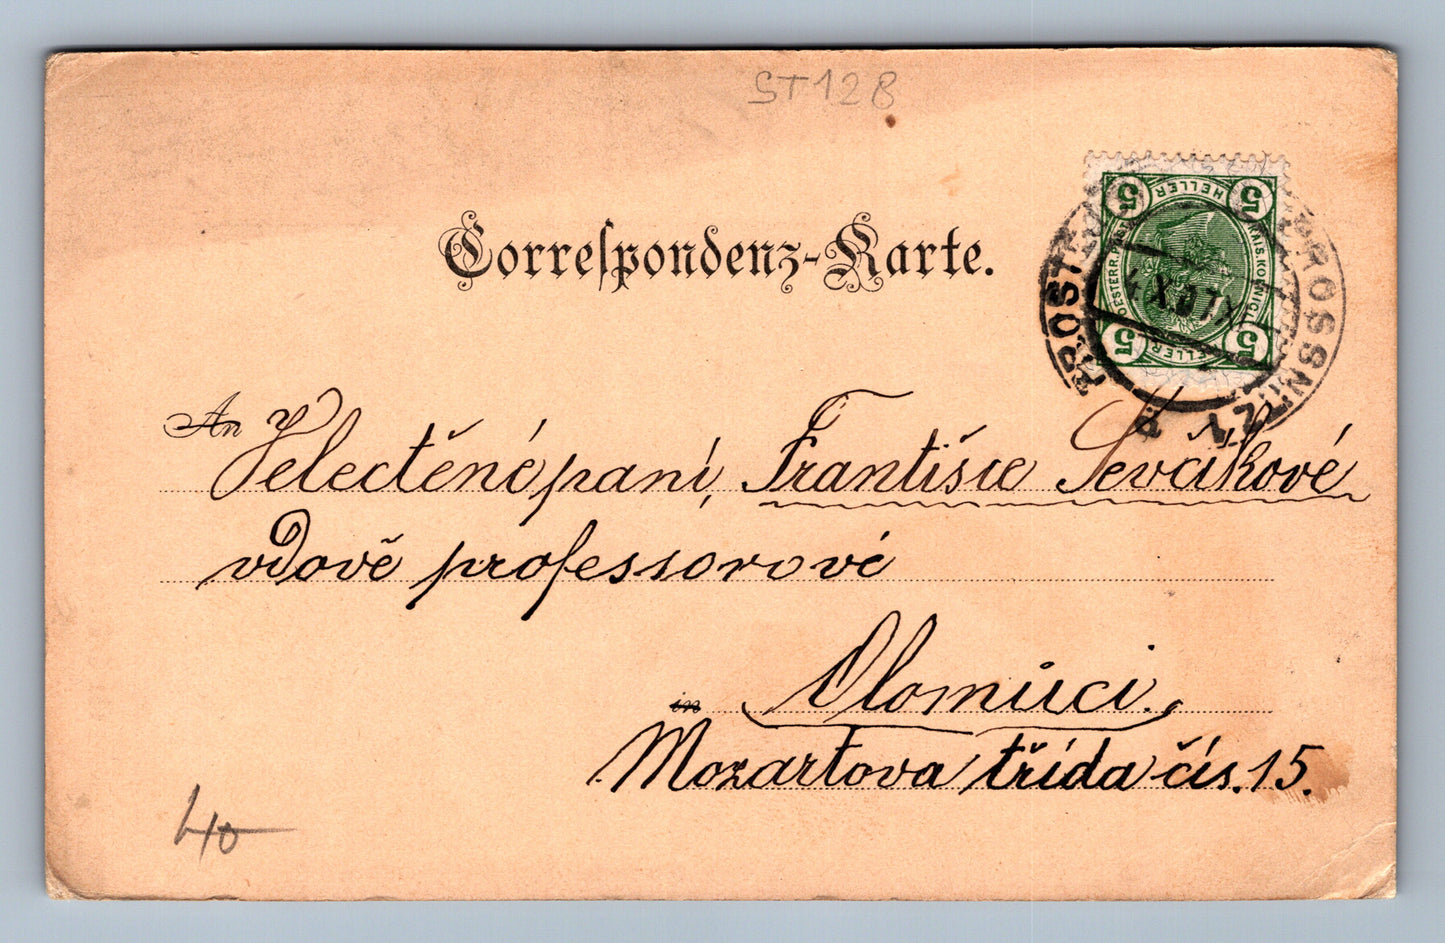 ST128
Correſpondenz-Karte.
5 HELLER 5
OESTERR. POST
KAIS. KOENIGL.
5 HELLER 5
PROSTĚJOV
PROSSNITZ
4 X 07 X
An Velectěné paní, Františce Ševčíkové
vdově professorové
in Olomúci.
Mozartova třída čís. 15.
40